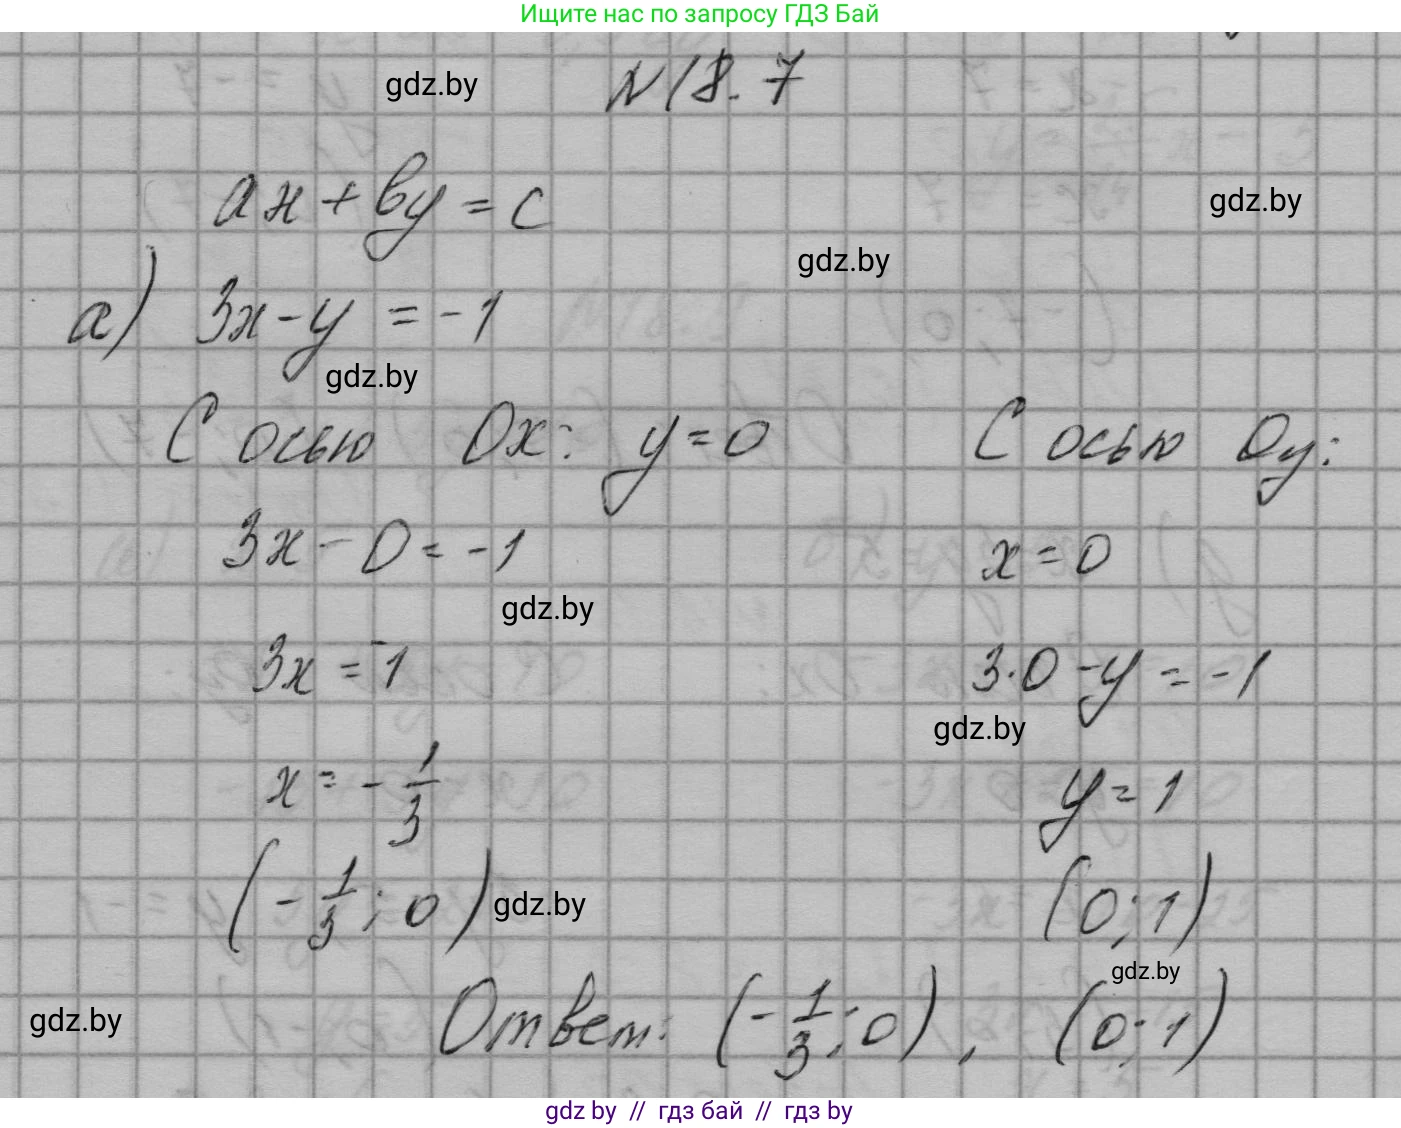 Ищите нас по запросу ГДЗ Бай
gdz.by №18.7
ax + by = c gdz.by
gdz.by
а) 3x - y = -1
gdz.by
С осью Ox: y = 0 С осью Oy:
3x - 0 = -1 x = 0
gdz.by
3x = -1 3·0 - y = -1
gdz.by
x = -1/3 y = 1
(-1/3; 0) gdz.by (0; 1)
gdz.by
gdz.by Ответ: (-1/3; 0), (0; 1)
gdz by // гдз бай // гдз by